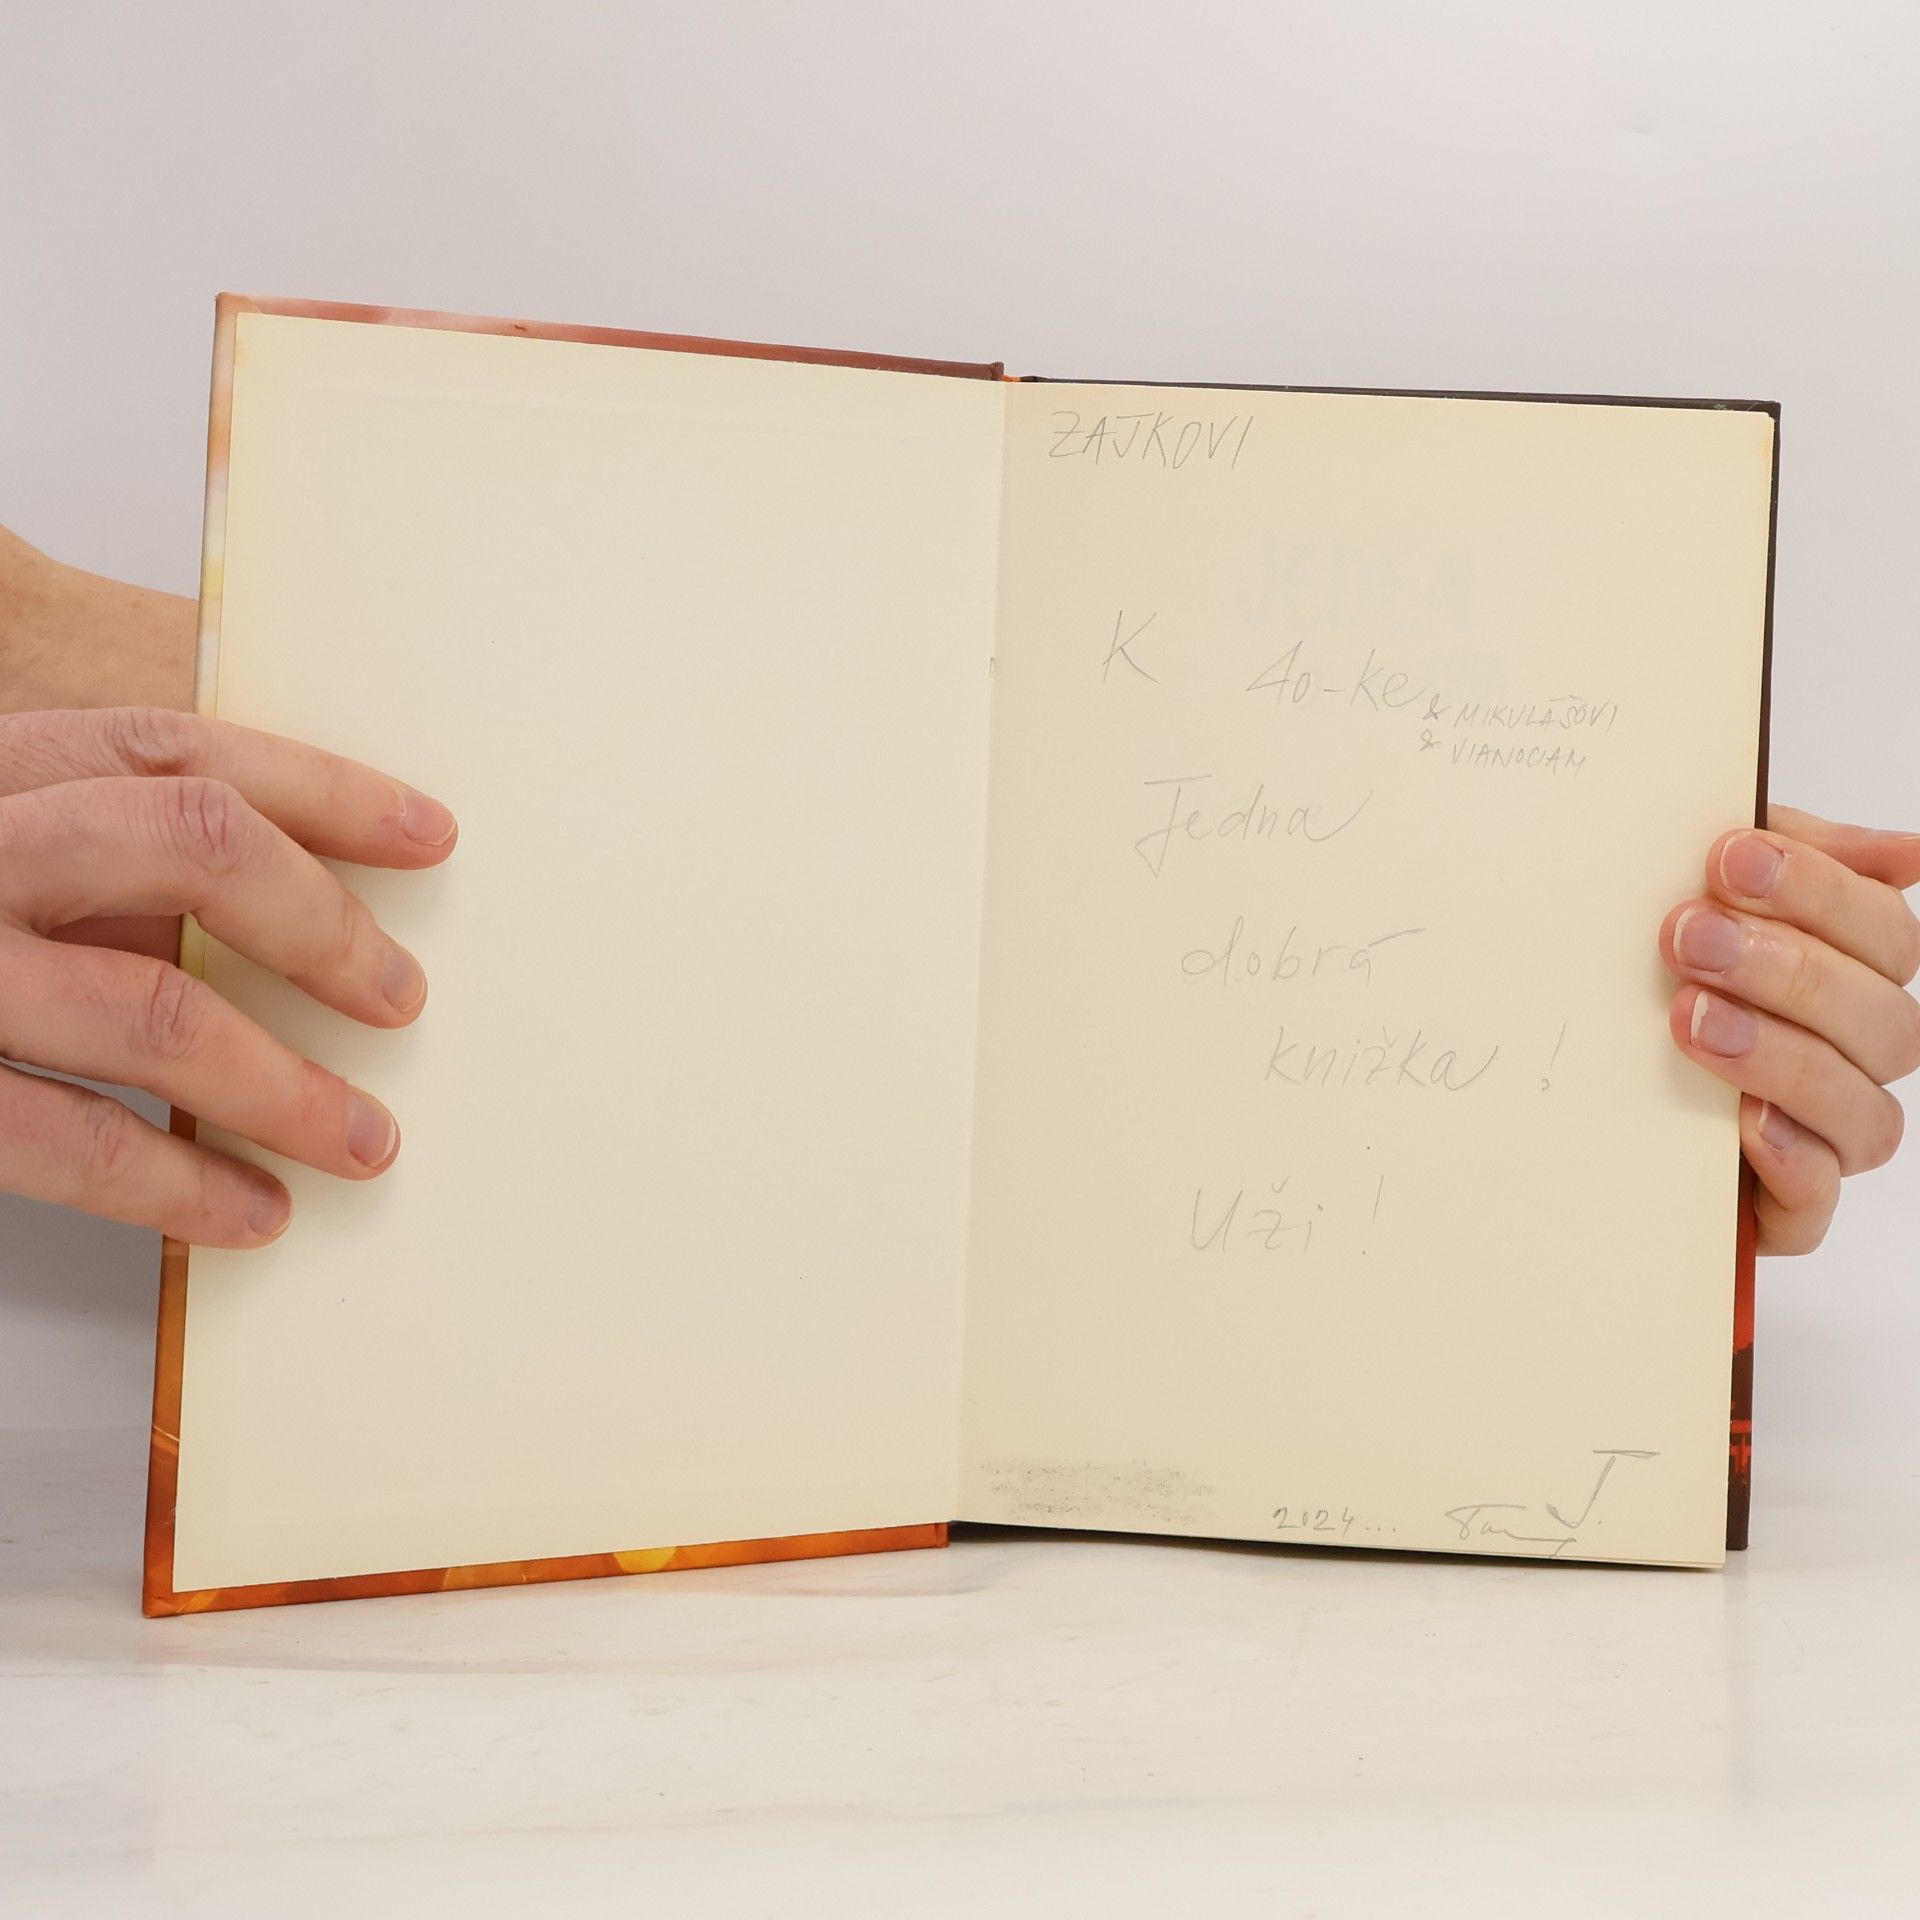 ZAJKOVI
K 40-ke & MIKULÁŠOVI
& VIANOCIAM
Jedna
dobrá
knižka !
Uži !
2024... J.